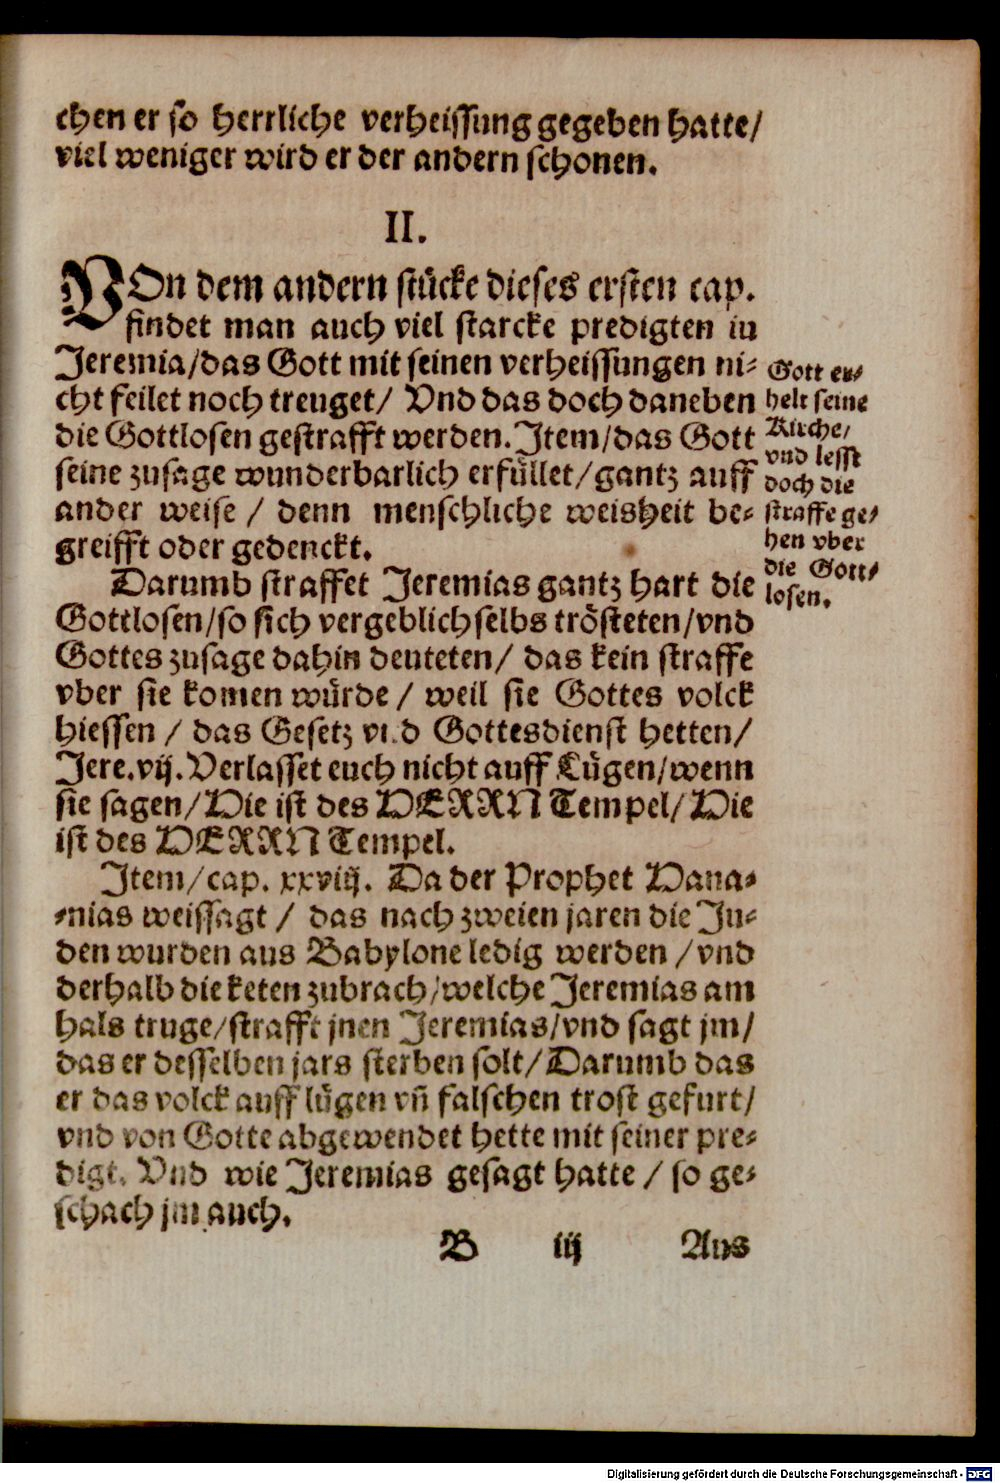 chen er so herrliche verheissung gegeben hatte/
viel weniger wird er der andern schonen.
II.
VOn dem andern stücke dieses ersten cap.
findet man auch viel starcke predigten in
Jeremia/das Gott mit seinen verheissungen ni-
cht feilet noch treuget/ Vnd das doch daneben
die Gottlosen gestrafft werden. Item/das Gott
seine zusage wunderbarlich erfüllet/gantz auff
ander weise / denn menschliche weisheit be-
greifft oder gedenckt.
Gott er-
helt seine
Kirche/
vnd lesst
doch die
straffe ge-
hen vber
die Gott-
losen.
Darumb straffet Jeremias gantz hart die
Gottlosen/so sich vergeblich selbs trösteten/vnd
Gottes zusage dahin deuteten/ das kein straffe
vber sie komen würde / weil sie Gottes volck
hiessen / das Gesetz vnd Gottesdienst hetten/
Jere.vij. Verlasset euch nicht auff Lügen/wenn
sie sagen/Hie ist des HERRN Tempel/Hie
ist des HERRN Tempel.
Item/cap. xxviij. Da der Prophet Hana-
-nias weissagt / das nach zweien jaren die Jü-
den wurden aus Babylone ledig werden /vnd
derhalb die keten zubrach/welche Jeremias am
hals truge/strafft jnen Jeremias/vnd sagt jm/
das er desselben jars sterben solt/Darumb das
er das volck auff lügen vñ falschen trost gefurt/
vnd von Gotte abgewendet hette mit seiner pre-
digt. Vnd wie Jeremias gesagt hatte / so ge-
schach jm auch.
B iij Aus
Digitalisierung gefördert durch die Deutsche Forschungsgemeinschaft - DFG